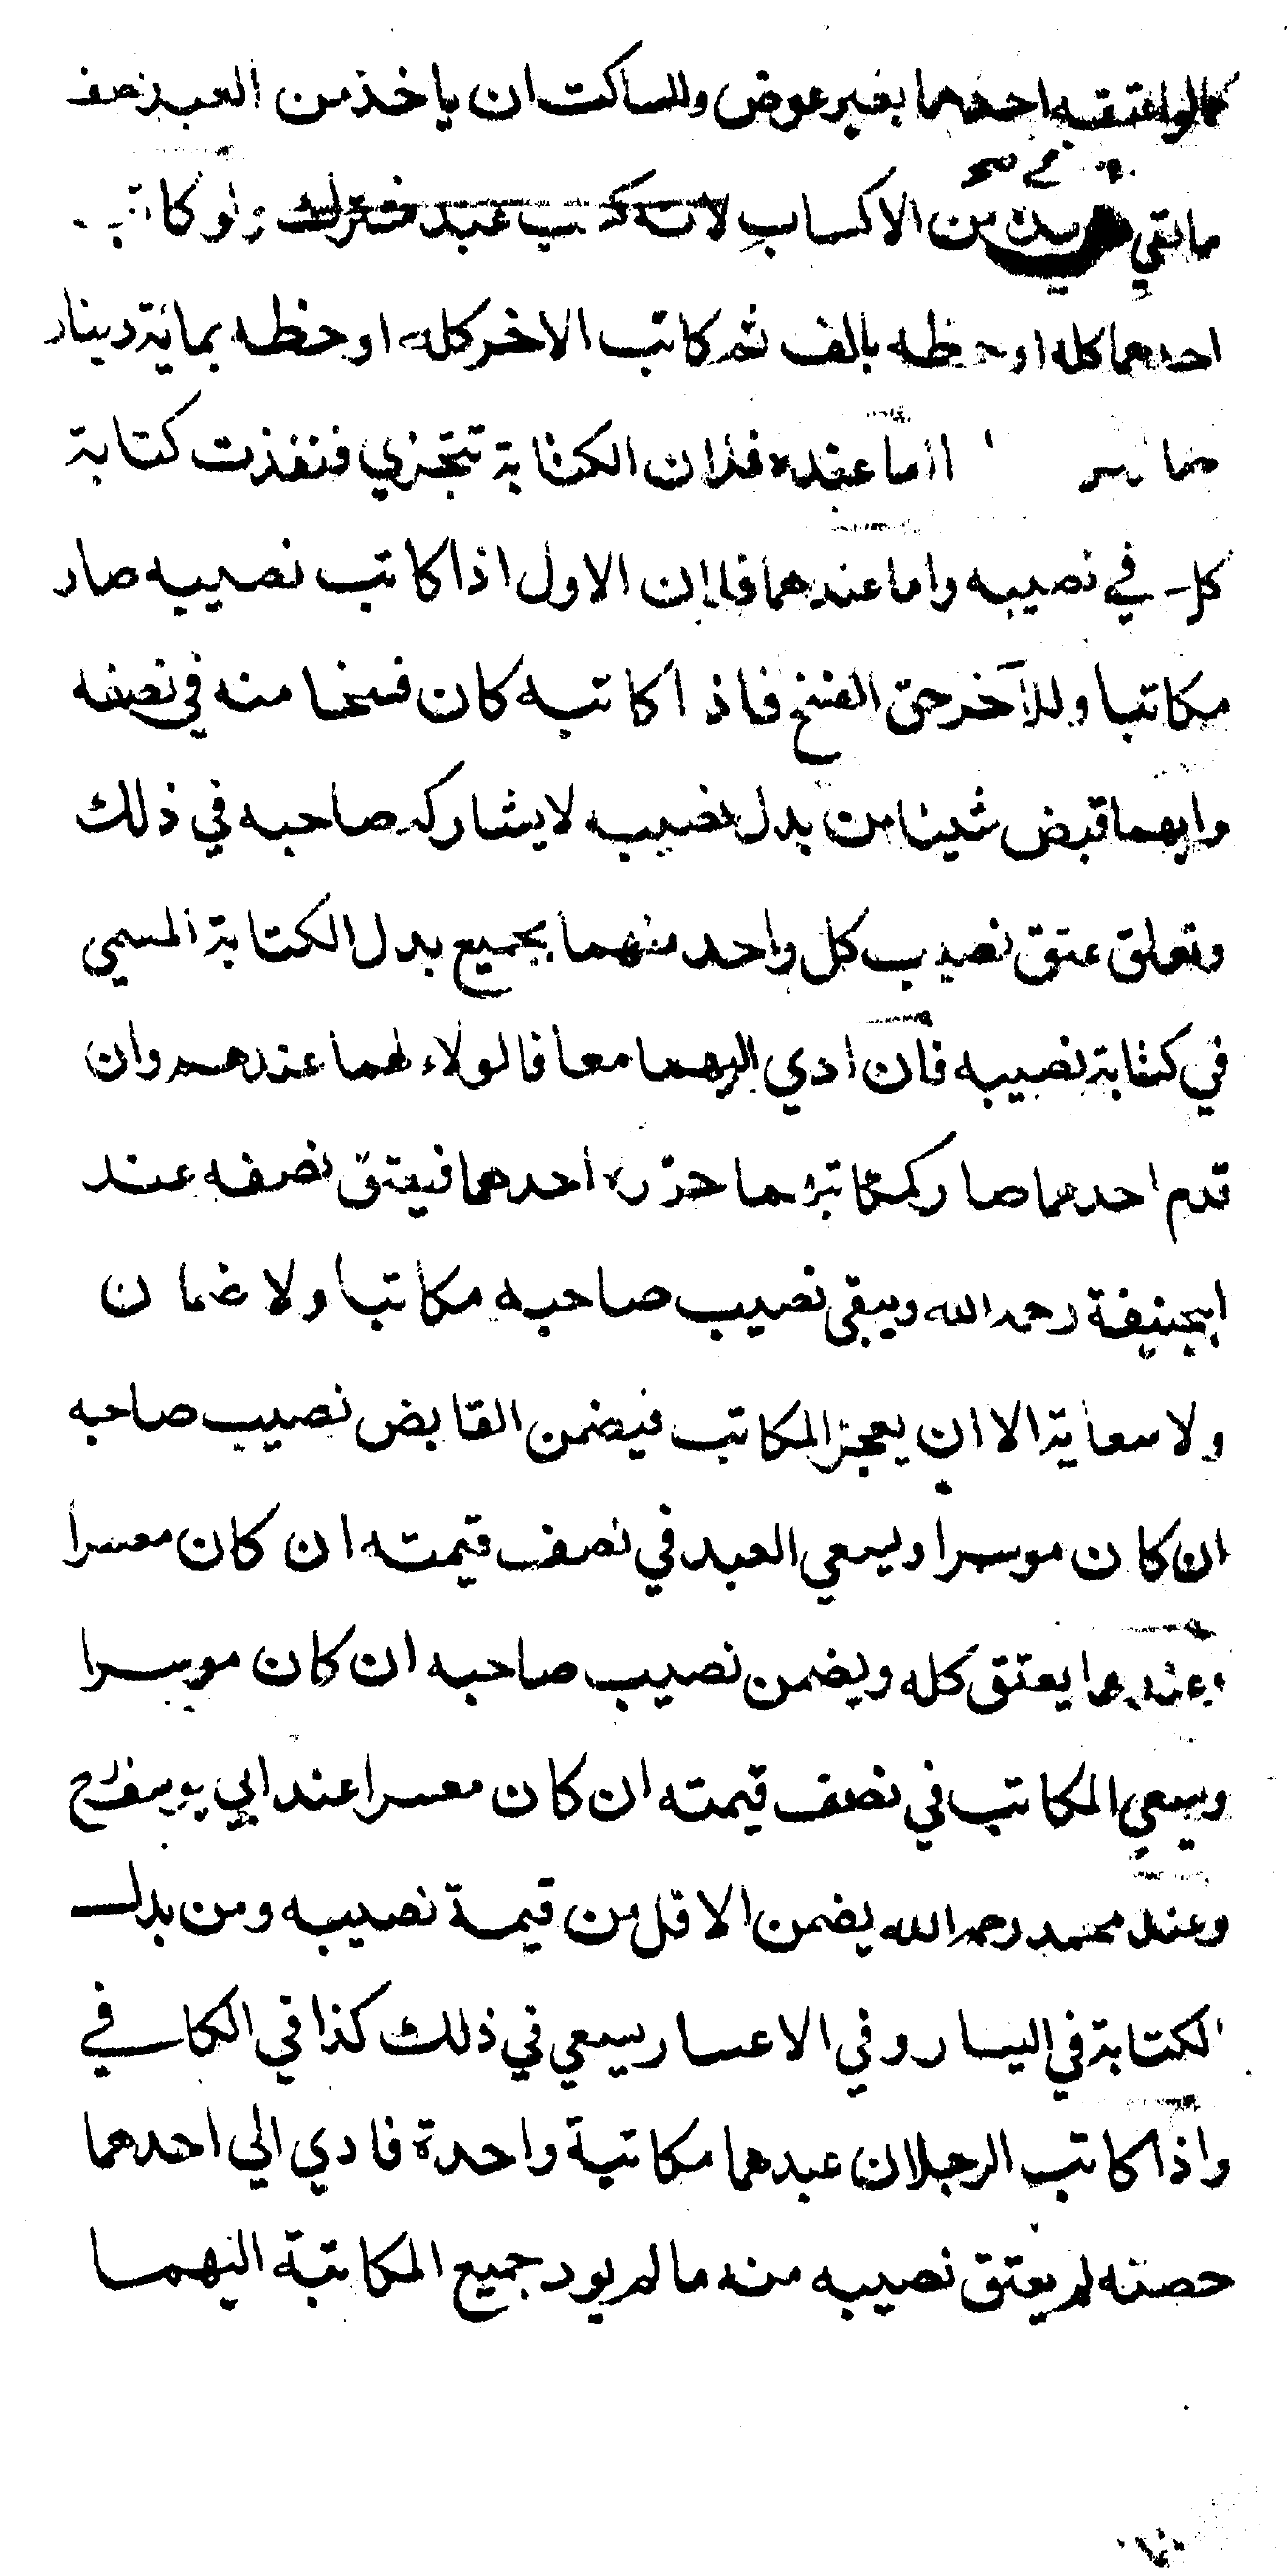 كمالو اعتقه احدهما بغير عوض وللساكت ان ياخذ من العبد نصف
ما بقي في يده من الاكساب لانه كسب عبد مشترك ولو كاتب
احدهما كله او حظه بالف ثم كاتب الاخر كله او حظه بماية دينار
اما عنده فلان الكتابة تتجزي فنفذت كتابة
كل في نصيبه واما عندهما فلان الاول اذا كاتب نصيبه صار
مكاتبا وللآخر حق الفسخ فاذا كاتبه كان فسخا منه في نصفه
وايهما قبض شيئا من بدل نصيبه لا يشاركه صاحبه في ذلك
وتعلق عتق نصيب كل واحد منهما بجميع بدل الكتابة المسمي
في كتابة نصيبه فان ادي اليهما معا فالولاء لهما عندهم وان
قدم احدهما صار كمكاتبهما حرره احدهما فيعتق نصفه عند
ابيحنيفة رحمه الله ويبقى نصيب صاحبه مكاتبا ولا ضمان
ولا سعاية الا ان يعجز المكاتب فيضمن القابض نصيب صاحبه
ان كان موسرا ويسعي العبد في نصف قيمته ان كان معسرا
وعندهما يعتق كله ويضمن نصيب صاحبه ان كان موسرا
ويسعي المكاتب في نصف قيمته ان كان معسرا عند ابي يوسف رح
وعند محمد رحمه الله يضمن الاقل من قيمة نصيبه ومن بدل
الكتابة في اليسار وفي الاعسار يسعي في ذلك كذا في الكافي
واذا كاتب الرجلان عبدهما مكاتبة واحدة فادي الي احدهما
حصته لم يعتق نصيبه منه ما لم يود جميع المكاتبة اليهما